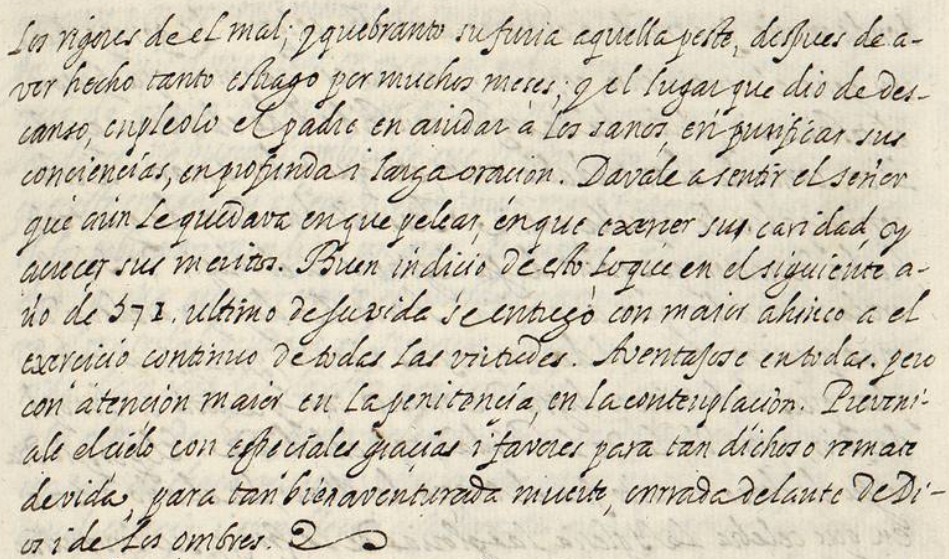 los rigores de el mal; y quebranto su furia aquella peste, despues de a-
ver hecho tanto estrago por muchos meses; y el lugar que dio de des-
canso, enpleolo el padre en aiudar à los sanos, en purificar sus
conciencias, en profunda i larga oracion. Davale a sentir el señor
que aun le quedava en que pelear, en que exercer su caridad, y
acrecer sus meritos. Buen indicio de esto fue que en el siguiente a-
ño de 571. ultimo de su vida se entregò con maior ahinco a el
exercicio continuo de todas las virtudes. Aventajose en todas. pero
con atencion maior en la penitencia, en la contenplacion. Preveni-
ale el cielo con especiales gracias i favores para tan dichoso remate
de vida, para tan bienaventurada muerte, onrrada delante de Di-
os i de los ombres.